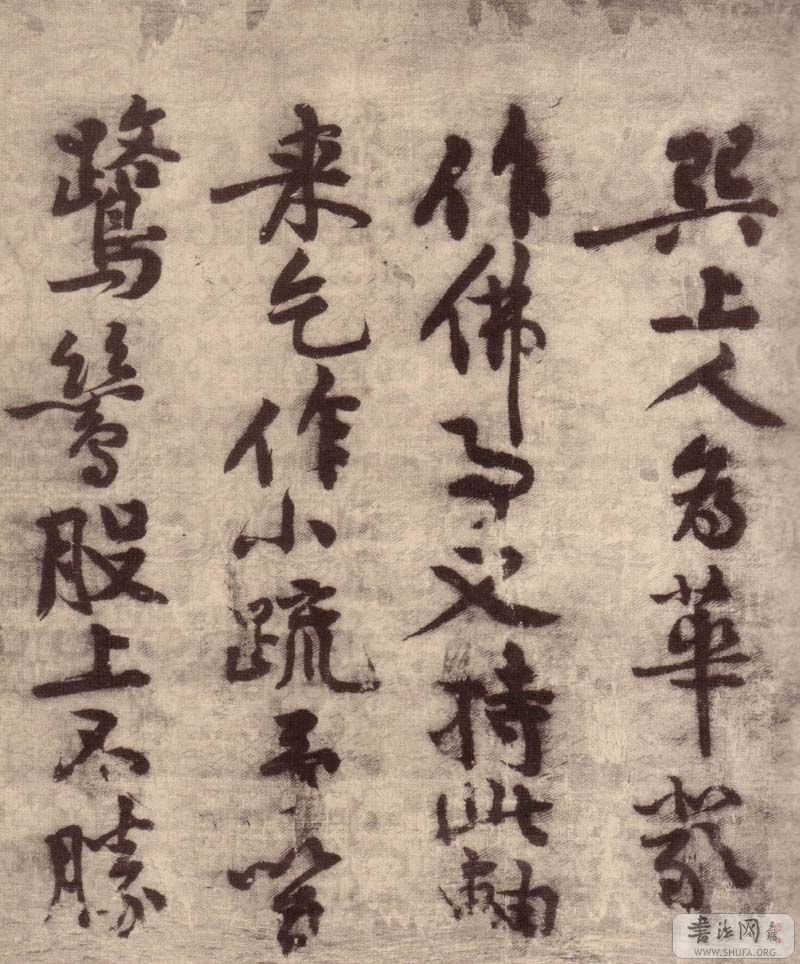 巽上人為華嚴
作佛事又持此軸
来乞作小疏
鷺鷥股上不勝
書法网
WWW.SHUFA.ORG